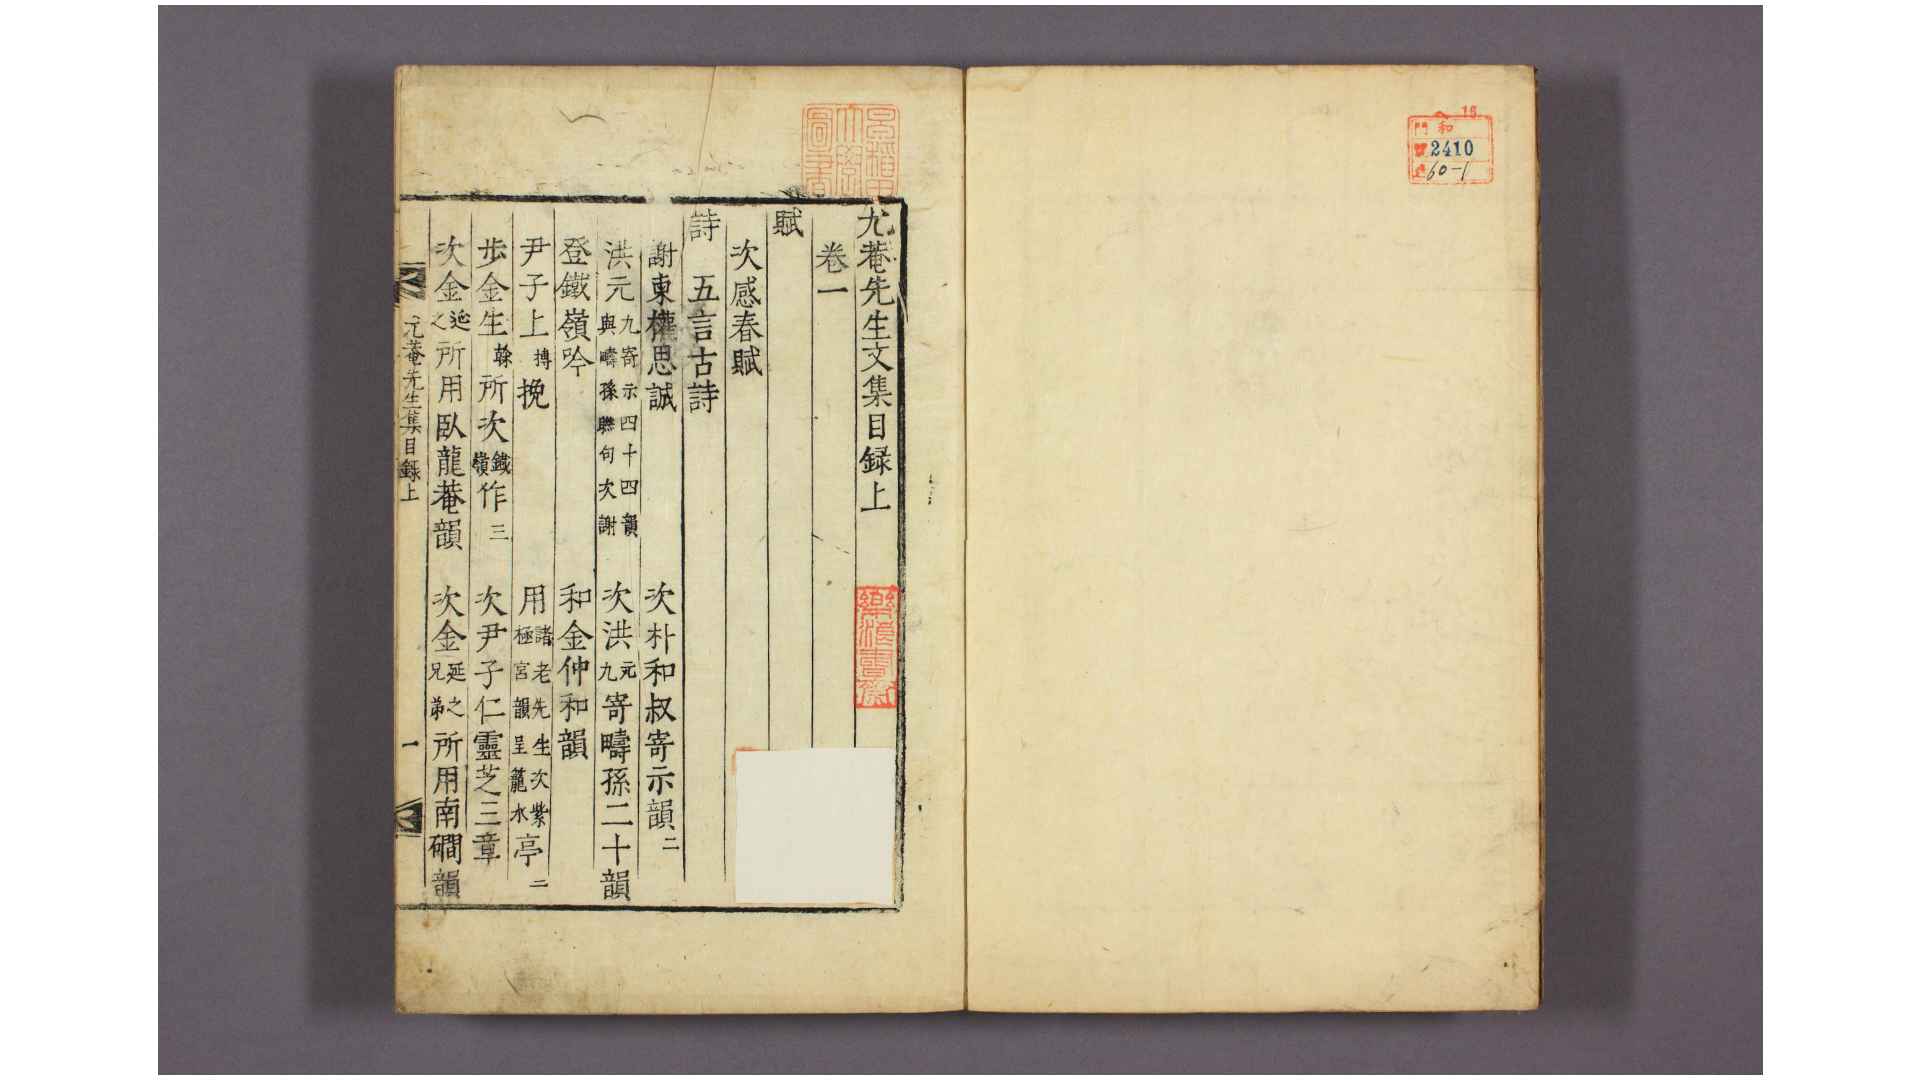 門 和
2410
60-1
尤菴先生文集目録上
卷一
賦
次感春賦
詩 五言古詩
謝東權思誠 次朴和叔寄示韻二
洪元九寄示四十四韻與疇孫聯句次謝 次洪元九寄疇孫二十韻
登鐵嶺吟 和金仲和韻
尹子上摶挽 用諸老先生次紫極宮韻呈蘢水亭二
步金生榦所次鐵嶺作三 次尹子仁靈芝三章
次金延之所用臥龍菴韻 次金延之兄弟所用南磵韻
尤菴先生集目錄上 一